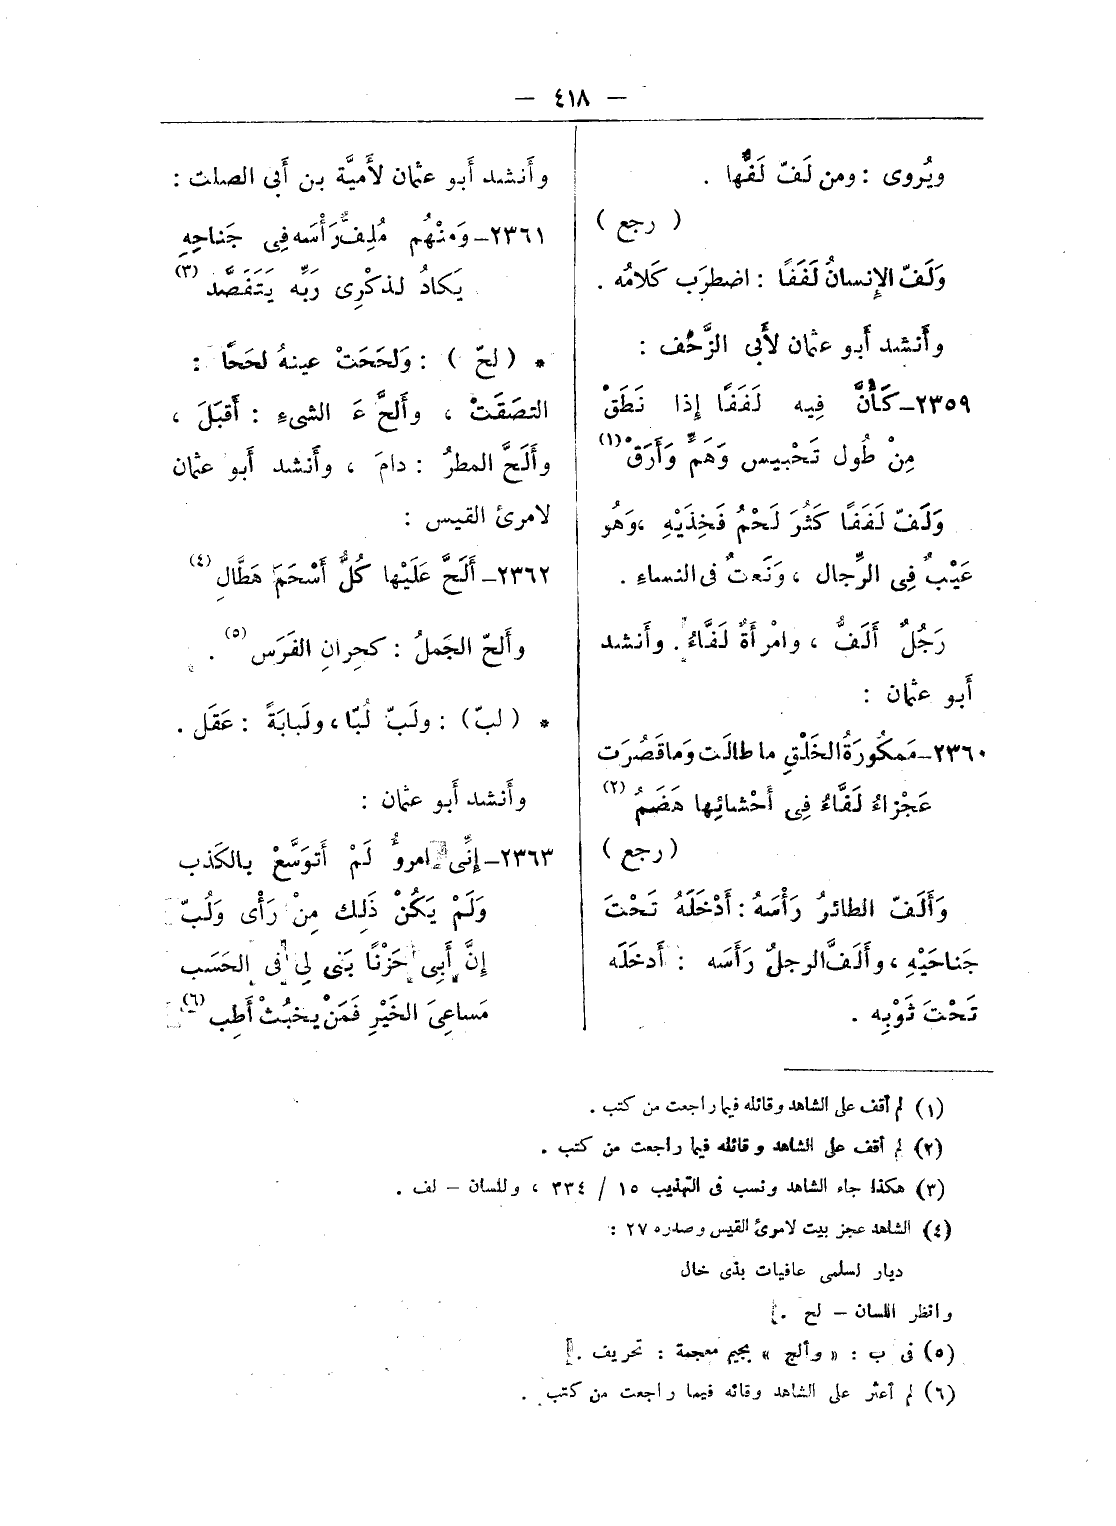 — ٤١٨ —
ويُروى : ومن لَفّ لَفُّها .
( رجع )
وَلَفّ الإِنسانُ لَفَفًا : اضطرَب كَلامُه .
وأَنشد أَبو عثمان لأَبى الزَّحْف :
٢٣٥٩–كَأَنَّ فِيه لَفَفًا إِذا نَطَقْ
مِنْ طُول تَحْبيس وَهَمٍّ وَأَرَقْ (١)
وَلَفّ لَفَفًا كَثُرَ لَحْمُ فَخِذَيْهِ ، وَهُو
عَيْبٌ فِى الرِّجال ، وَنَعتٌ فى النساءِ .
رَجُلٌ أَلَفُّ ، وامْرأَةٌ لَفَّاءُ . وأَنشد
أَبو عثمان :
٢٣٦٠–مَمكُورَةُ الخَلْقِ ما طالَت وَما قَصُرَت
عَجْزاءُ لَفَّاءُ فِى أَحْشائِها هَضَمُ (٢)
( رجع )
وَأَلَفّ الطائرُ رَأْسَهُ : أَدْخَلَهُ تَحْتَ
جَناحَيْهِ ، وأَلَفَّ الرجلُ رَأْسَه : أَدخَلَه
تَحْتَ ثَوْبِه .
وأَنشد أَبو عثمان لأُميَّة بن أَبى الصلت :
٢٣٦١–وَمنْهُم مُلِفٌّ رَأْسَه فِى جَناحِهِ
يَكادُ لذكْرِى رَبِّه يَتَفَصَّد (٣)
* ( لحّ ) : وَلَححَتْ عينهُ لحَحًا :
التصَقَتْ ، وأَلحَّ عَ الشىءِ : أَقبَلَ ،
وأَلَحَّ المطرُ : دامَ ، وأَنشد أَبو عثمان
لامرئ القيس :
٢٣٦٢–أَلَحَّ عَلَيْها كُلُّ أَسْحَمَ هَطَّالِ (٤)
وأَلحّ الجَملُ : كحِرانِ الفَرَس (٥) .
* ( لبّ ) : ولَبّ لُبّا ، ولَبابَةً : عَقَل .
وأَنشد أَبو عثمان :
٢٣٦٣–إِنِّى امروٌ لَمْ أَتوَسَّعْ بالكَذب
وَلَمْ يَكُنْ ذَلِك مِنْ رَأْى وَلُبّ
إِنَّ أَبِى حَزْنًا بَنى لِى فى الحَسَب
مَساعِىَ الخَيْرِ فَمَنْ يخبُثْ أَطِب (٦)
(١) لم أقف على الشاهد وقائله فيما راجعت من كتب .
(٢) لم أقف على الشاهد وقائله فيما راجعت من كتب .
(٣) هكذا جاء الشاهد ونسب فى التهذيب ١٥ / ٣٣٤ ، وللسان – لف .
(٤) الشاهد عجز بيت لامرئ القيس وصدره ٢٧ :
ديار لسلمى عافيات بذى خال
وانظر اللسان – لح .
(٥) فى ب : « وألج » بجيم معجمة : تحريف .
(٦) لم أعثر على الشاهد وقائه فيما راجعت من كتب .